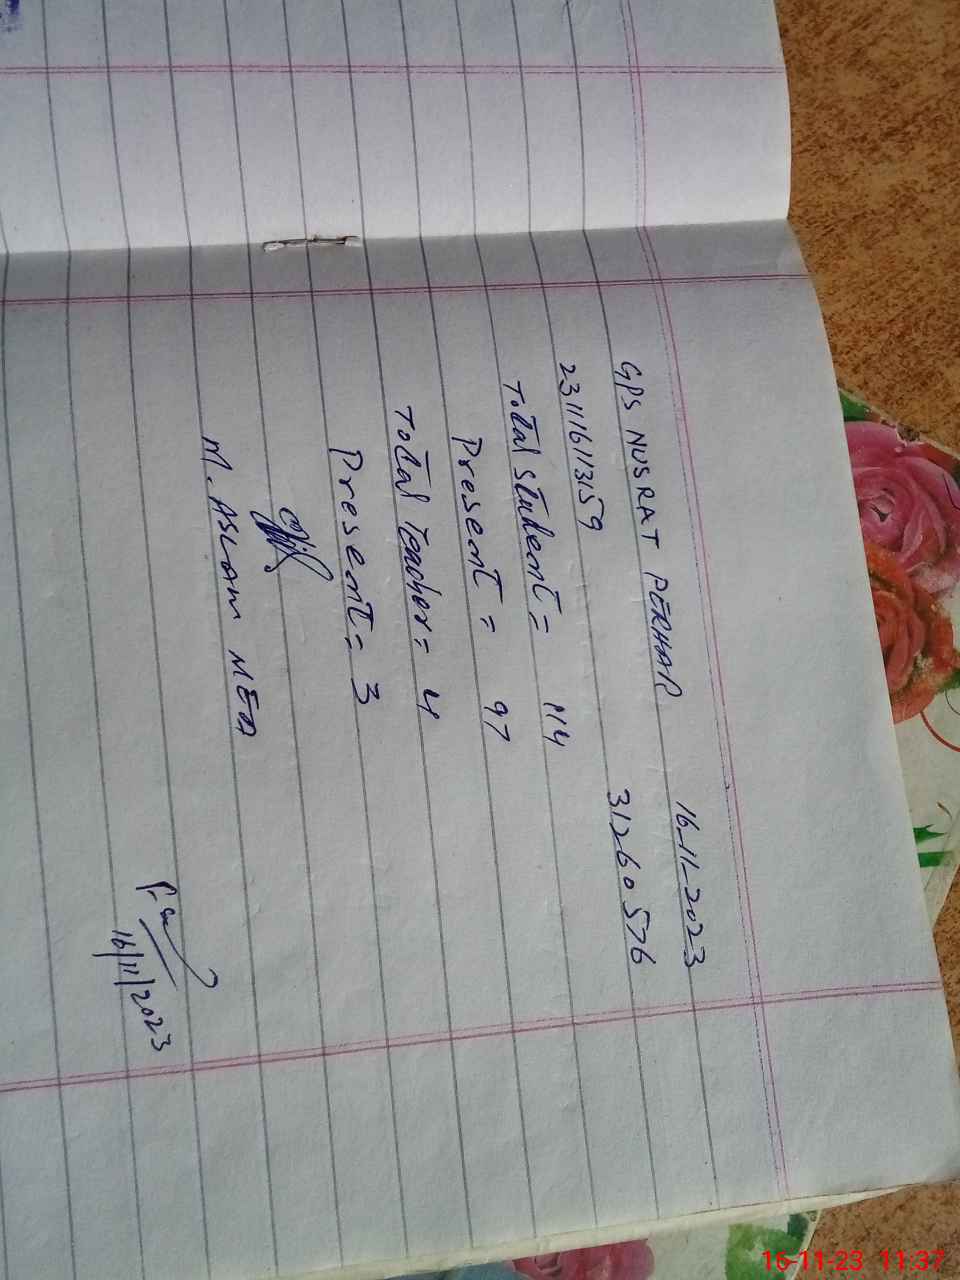 16-11-2023
GPS NUSRAT PERHAR
31260576
231116113159
Total student = 114
Present = 97
Total Teacher = 4
Present = 3
M. ASLAM MEO
16/11/2023
16-11-23 11:37